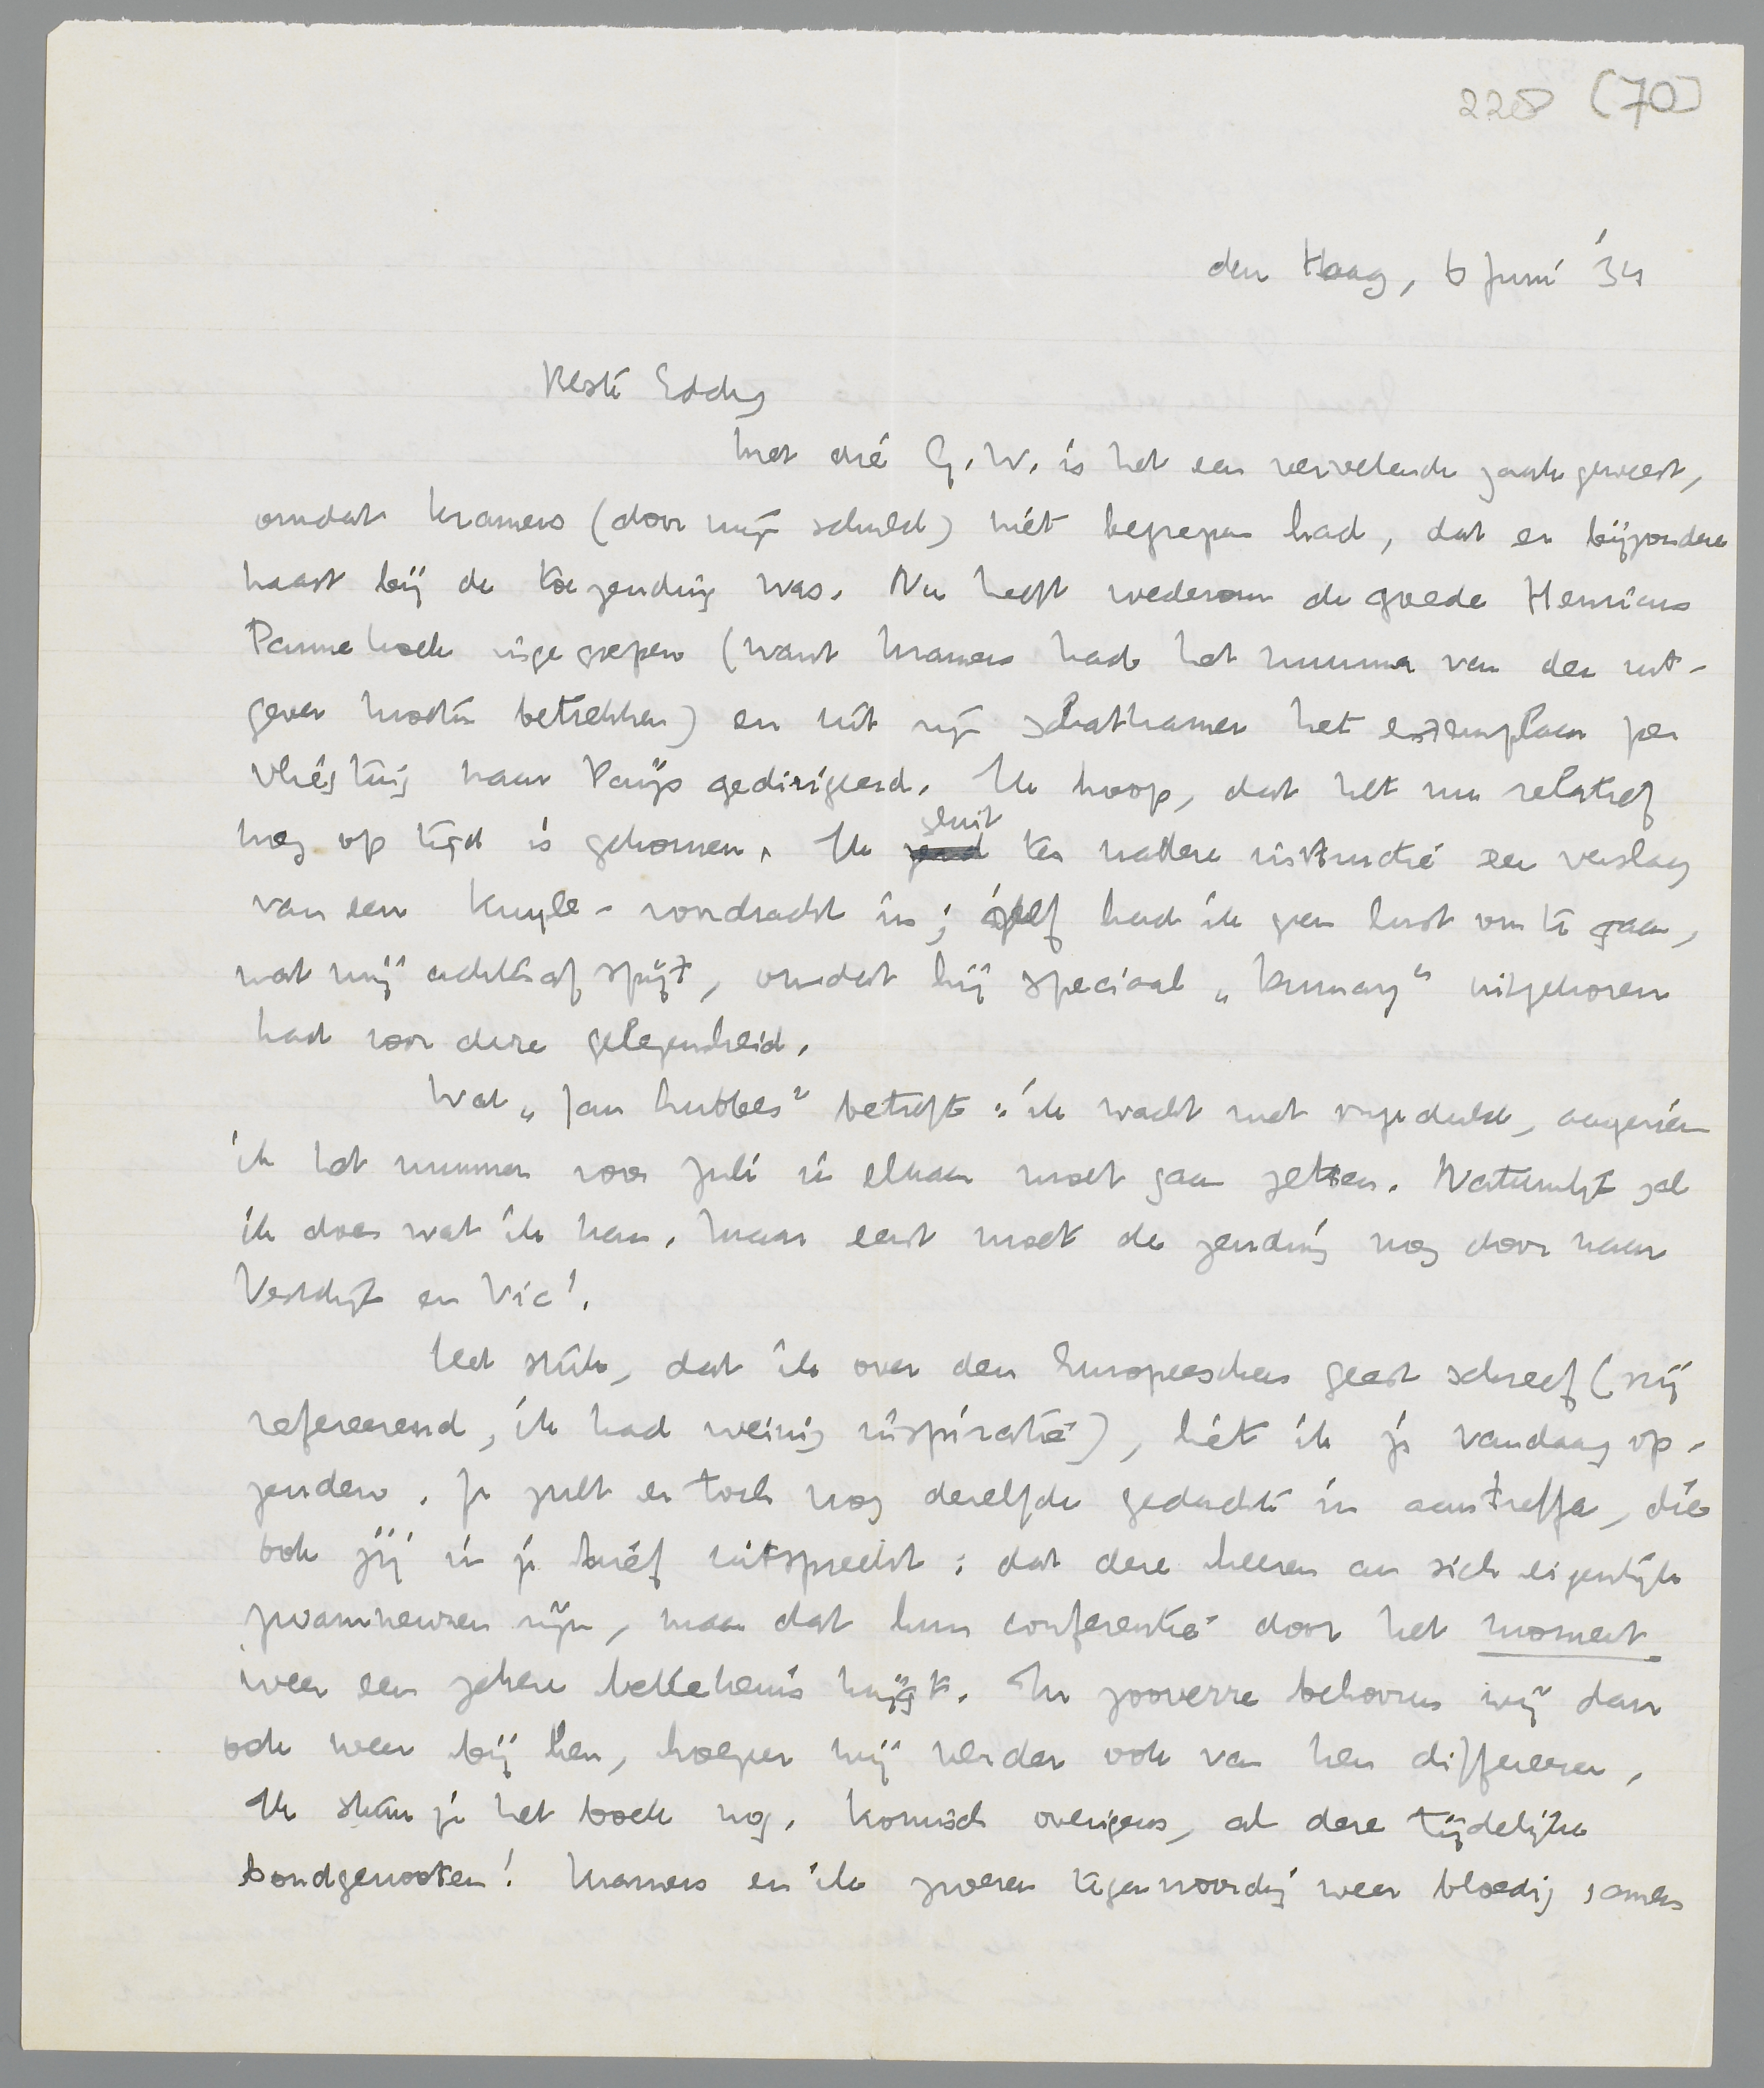 228 [70]
den Haag, 6 Juni '34
Beste Eddy
Met die G.W. is het een vervelende zaak geweest,
omdat Kramers (door mijn schuld) niet begrepen had, dat er bijzondere
haast bij de toezending was. Nu heeft wederom de goede Henricus
Pannekoek ingegrepen (want Kramers had het nummer van den uit-
gever moeten betrekken) en uit zijn schatkamer het exemplaar per
vliegtuig naar Parijs gedirigeerd. Ik hoop, dat het nu relatief
nog op tijd is gekomen. Ik zend sluit ter nadere instructie een verslag
van een Kuyle-voordracht in; zelf had ik geen lust om te gaan,
wat mij achteraf spijt, omdat hij speciaal „Forum" uitgekozen
had voor deze gelegenheid.
Wat „Jan Lubbes" betreft: ik wacht met ongeduld, aangezien
ik het nummer voor Juli in elkaar moet gaan zetten. Natuurlijk zal
ik doen wat ik kan, maar eerst moet de zending nog door naar
Vestdijk en Vic!.
Het stuk, dat ik over den Europeeschen geest schreef (vrij
refereerend, ik had weinig inspiratie), liet ik je vandaag op-
zenden. Je zult er toch nog dezelfde gedachte in aantreffen, die
ook jij in je brief uitspreekt: dat deze heeren an sich eigenlijk
zwamneuzen zijn, maar dat hun conferentie door het moment
weer een zekere beteekenis krijgt. In zooverre behooren wij dan
ook weer bij hen, hoezeer wij verder ook van hen differeeren.
Ik stuur je het boek nog. Komisch overigens, al deze tijdelijke
bondgenooten! Kramers en ik zweren tegenwoordig weer bloedig samen